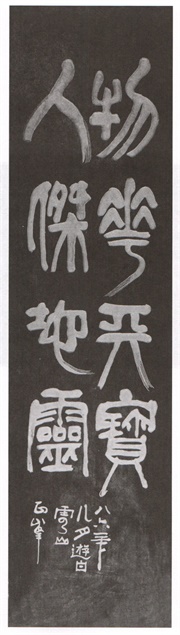 物華天寶
人傑地靈
八六年
八月遊白
雲山